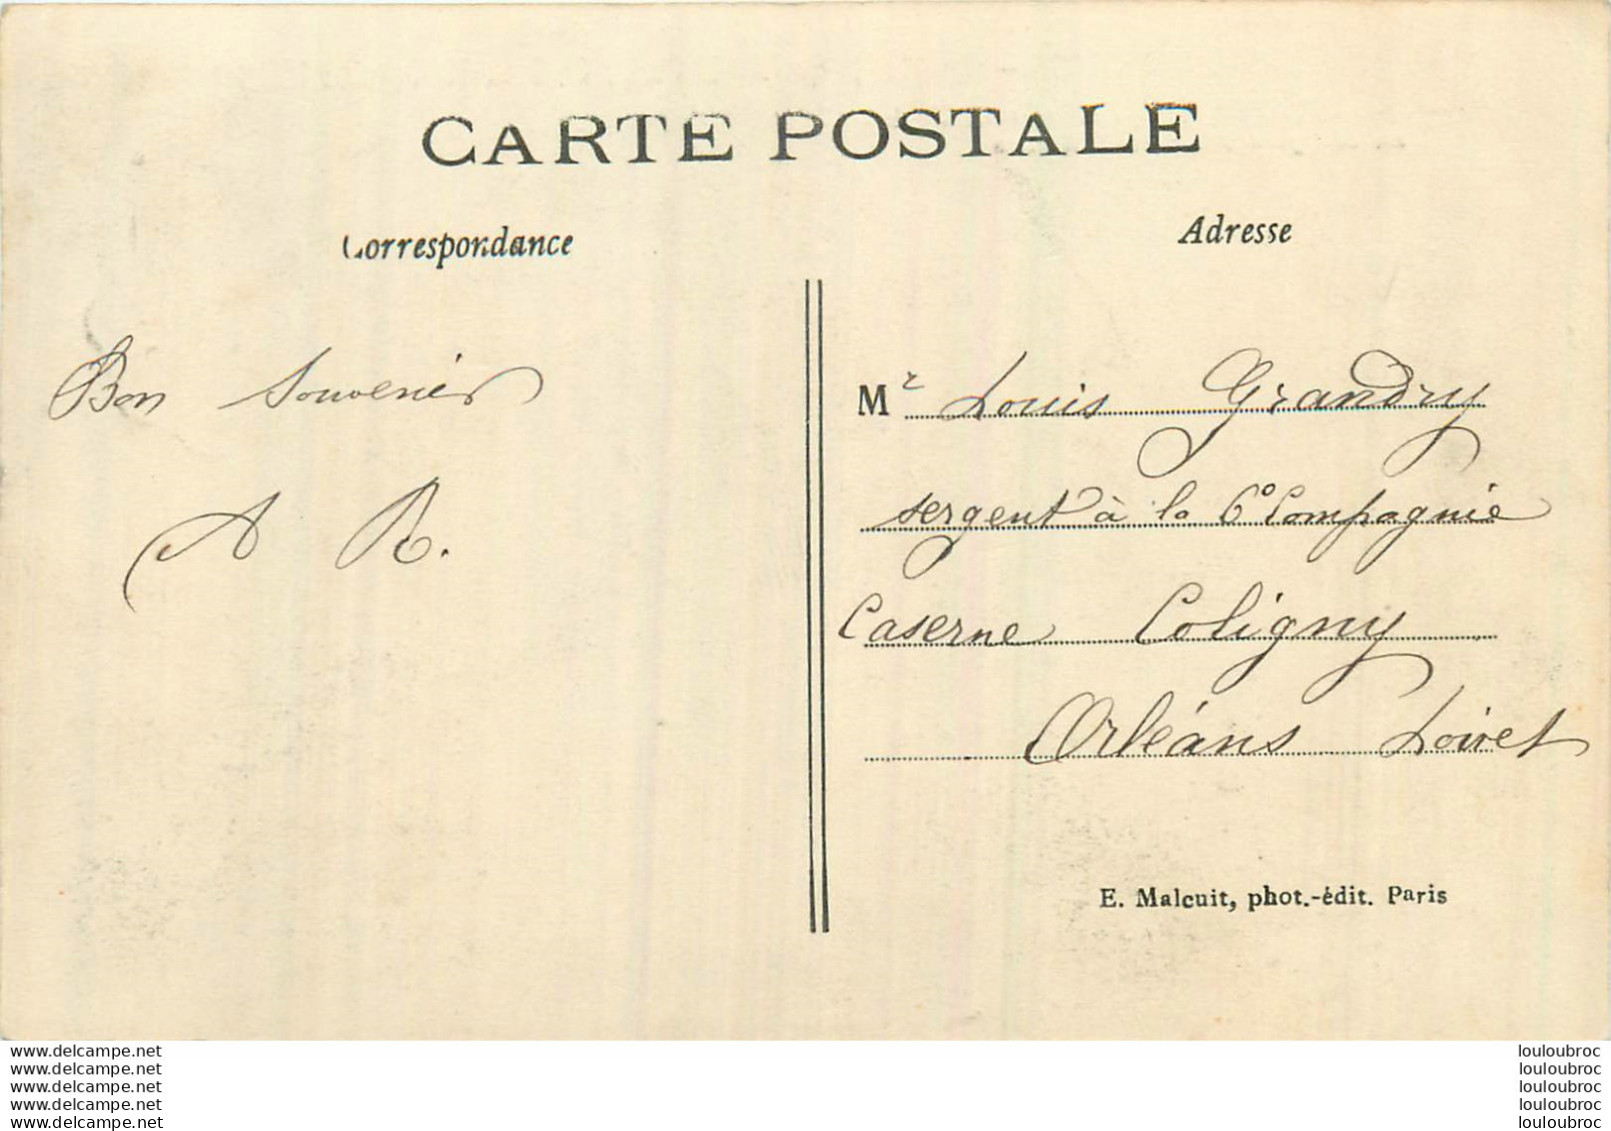 CARTE POSTALE
Correspondance
Adresse
Bon Souvenir
A R.
Mr Louis Grandry
sergent à la 6e Compagnie
Caserne Coligny
Orléans Loiret
E. Malcuit, phot.-édit. Paris
www.delcampe.net
www.delcampe.net
www.delcampe.net
www.delcampe.net
www.delcampe.net
louloubroc
louloubroc
louloubroc
louloubroc
louloubroc